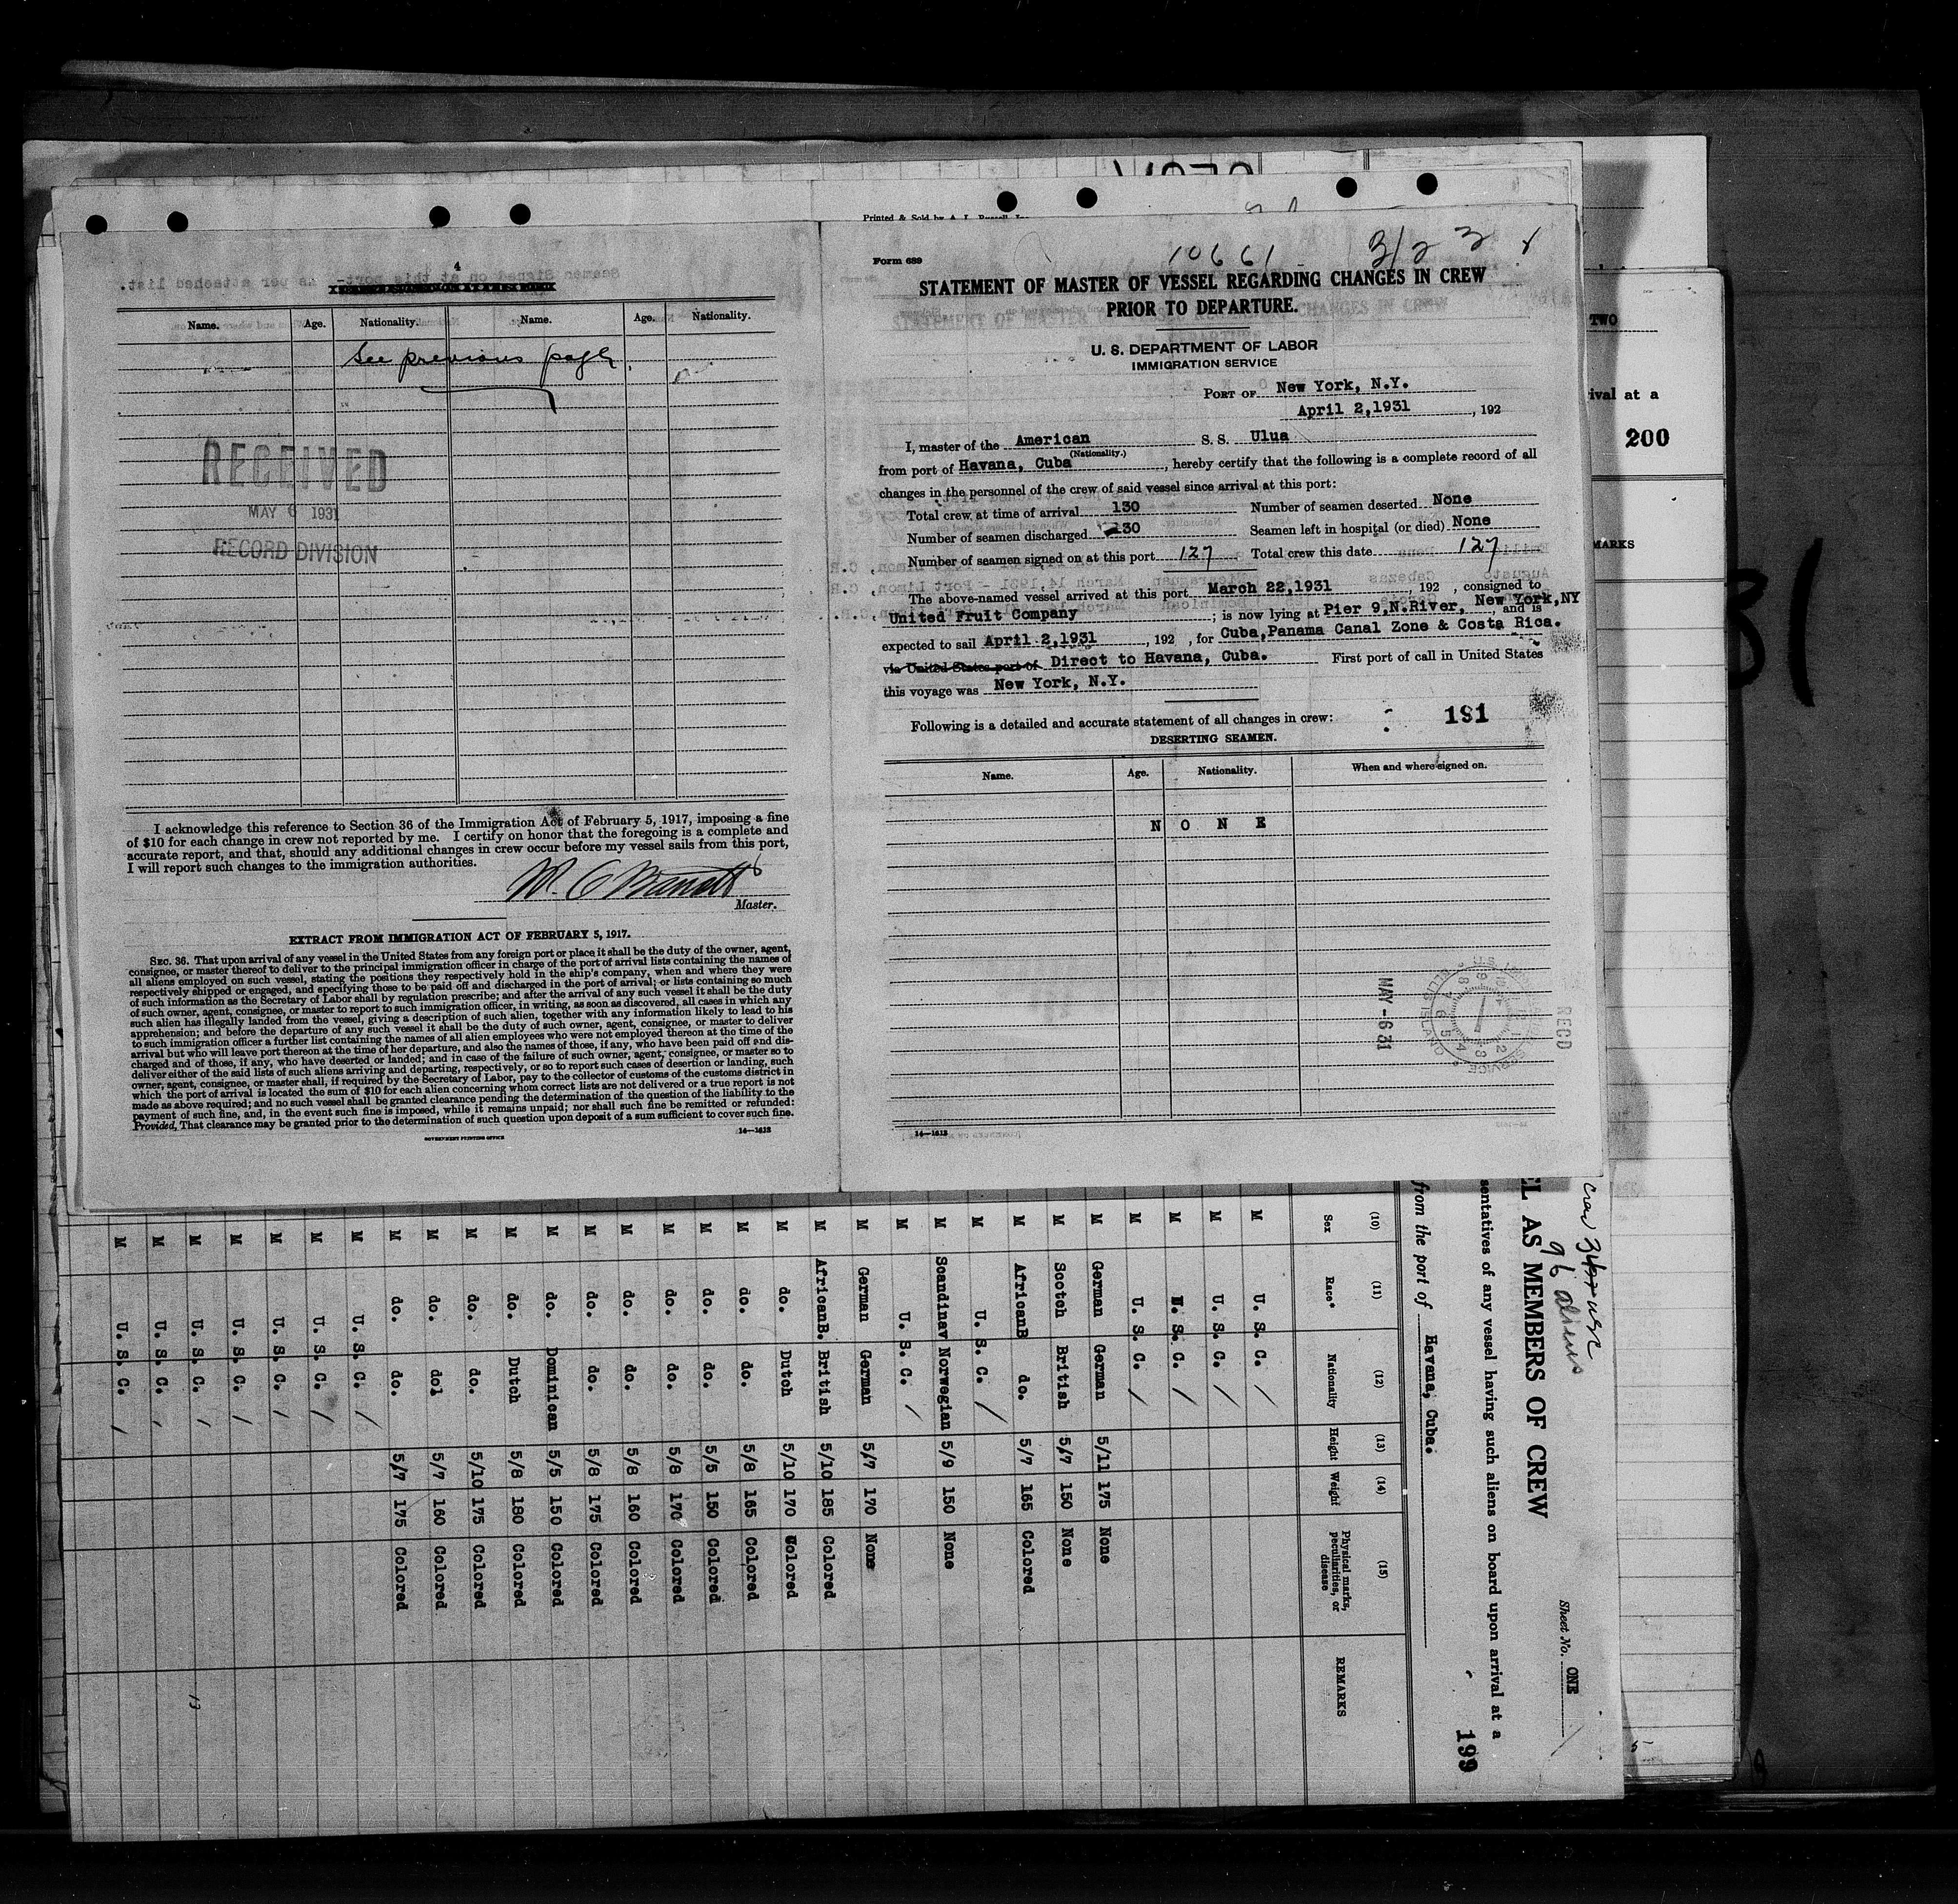 4
Name. Age. Nationality. Name. Age. Nationality.
See previous page.
RECEIVED
MAY 6 1931
RECORD DIVISION
I acknowledge this reference to Section 36 of the Immigration Act of February 5, 1917, imposing a fine
of $10 for each change in crew not reported by me. I certify on honor that the foregoing is a complete and
accurate report, and that, should any additional changes in crew occur before my vessel sails from this port,
I will report such changes to the immigration authorities.
Master.
EXTRACT FROM IMMIGRATION ACT OF FEBRUARY 5, 1917.
SEC. 36. That upon arrival of any vessel in the United States from any foreign port or place it shall be the duty of the owner, agent,
consignee, or master thereof to deliver to the principal immigration officer in charge of the port of arrival lists containing the names of
all aliens employed on such vessel, stating the positions they respectively hold in the ship's company, when and where they were
respectively shipped or engaged, and specifying those to be paid off and discharged in the port of arrival; or lists containing so much
of such information as the Secretary of Labor shall by regulation prescribe; and after the arrival of any such vessel it shall be the duty
of such owner, agent, consignee, or master to report to such immigration officer, in writing, as soon as discovered, all cases in which any
such alien has illegally landed from the vessel, giving a description of such alien, together with any information likely to lead to his
apprehension; and before the departure of any such vessel it shall be the duty of such owner, agent, consignee, or master to deliver
to such immigration officer a further list containing the names of all alien employees who were not employed thereon at the time of the
arrival but who will leave port thereon at the time of her departure, and also the names of those, if any, who have been paid off and dis-
charged and of those, if any, who have deserted or landed; and in case of the failure of such owner, agent, consignee, or master so to
deliver either of the said lists of such aliens arriving and departing, respectively, or so to report such cases of desertion or landing, such
owner, agent, consignee, or master shall, if required by the Secretary of Labor, pay to the collector of customs of the customs district in
which the port of arrival is located the sum of $10 for each alien concerning whom correct lists are not delivered or a true report is not
made as above required; and no such vessel shall be granted clearance pending the determination of the question of the liability to the
payment of such fine, and, in the event such fine is imposed, while it remains unpaid; nor shall such fine be remitted or refunded:
Provided, That clearance may be granted prior to the determination of such question upon deposit of a sum sufficient to cover such fine.
GOVERNMENT PRINTING OFFICE 14—1613
Printed & Sold by A. L. Russell, Inc.
Form 689
10661
STATEMENT OF MASTER OF VESSEL REGARDING CHANGES IN CREW
PRIOR TO DEPARTURE.
U. S. DEPARTMENT OF LABOR
IMMIGRATION SERVICE
PORT OF New York, N.Y.
April 2,1931, 192
I, master of the American S. S. Ulua
(Nationality.)
from port of Havana, Cuba, hereby certify that the following is a complete record of all
changes in the personnel of the crew of said vessel since arrival at this port:
Total crew at time of arrival 130 Number of seamen deserted None
Number of seamen discharged 130 Seamen left in hospital (or died) None
Number of seamen signed on at this port 127 Total crew this date 127
The above-named vessel arrived at this port March 22,1931, 192 , consigned to
United Fruit Company; is now lying at Pier 9,N.River, New York,NY and is
expected to sail April 2,1931, 192 , for Cuba,Panama Canal Zone & Costa Rica.
via United States port of Direct to Havana, Cuba. First port of call in United States
this voyage was New York, N.Y.
Following is a detailed and accurate statement of all changes in crew: 191
DESERTING SEAMEN.
Name. Age. Nationality. When and where signed on.
N O N E
MAY -6 31
REC'D
14—1613
TWO
ival at a
200
MARKS
EL AS MEMBERS OF CREW
Sheet No. ONE
sentatives of any vessel having such aliens on board upon arrival at a
from the port of Havana, Cuba.
199
96 aliens
(10) (11) (12) (13) (14) (15)
Sex Race* Nationality Height Weight Physical marks, peculiarities, or disease REMARKS
M U. S. C. /
M U. S. C. /
M U. S. C. /
M U. S. C. /
M German German 5/11 175 None
M Scotch British 5/7 150 None
M AfricanB do. 5/7 165 Colored
M U. S. C. /
M Scandinav Norwegian 5/9 150 None
M U. S. C. /
M German German 5/7 170 None
M AfricanB. British 5/10 185 Colored
M do. Dutch 5/10 170 Colored
M do. do. 5/8 165 Colored
M do. do. 5/5 150 Colored
M do. do. 5/8 170 Colored
M do. do. 5/8 160 Colored
M do. do. 5/8 175 Colored
M do. Dominican 5/5 150 Colored
M do. Dutch 5/8 180 Colored
M do. do. 5/10 175 Colored
M do. dol 5/7 160 Colored
M do. do. 5/7 175 Colored
M U. S. C. /
M U. S. C. /
M U. S. C. /
M U. S. C. /
M U. S. C. /
M U. S. C. /
M U. S. C. /